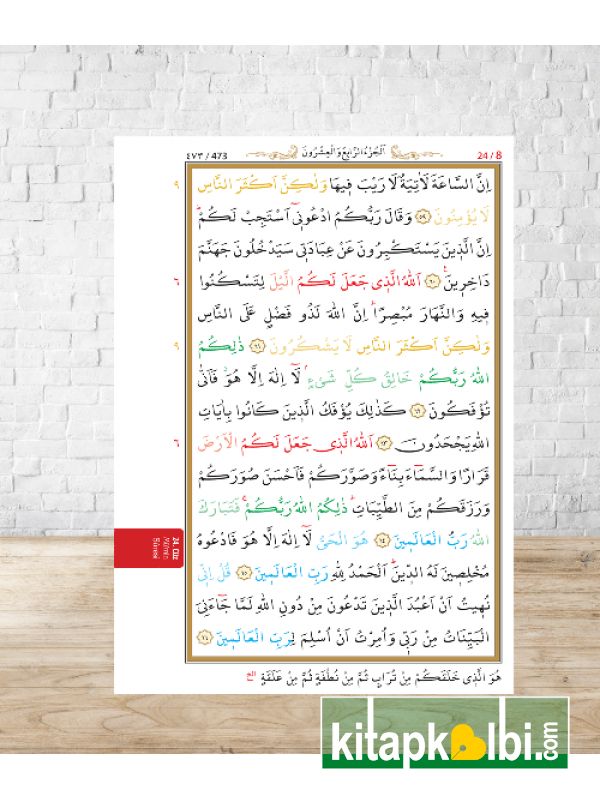 ٤٧٣ / 473 اَلْجُزْءُ الرَّابِعُ وَالْعِشْرُونَ 24 / 8
اِنَّ السَّاعَةَ لَاٰتِيَةٌ لَا رَيْبَ فٖيهَا وَلٰكِنَّ اَكْثَرَ النَّاسِ ٩
لَا يُؤْمِنُونَ ﴿٥٩﴾ وَقَالَ رَبُّكُمُ ادْعُونٖٓى اَسْتَجِبْ لَكُمْؕ
اِنَّ الَّذٖينَ يَسْتَكْبِرُونَ عَنْ عِبَادَتٖى سَيَدْخُلُونَ جَهَنَّمَ
دَاخِرٖينَ ﴿٦٠﴾ اَللّٰهُ الَّذٖى جَعَلَ لَكُمُ الَّيْلَ لِتَسْكُنُوا ٦
فٖيهِ وَالنَّهَارَ مُبْصِرًاؕ اِنَّ اللّٰهَ لَذُو فَضْلٍ عَلَى النَّاسِ
وَلٰكِنَّ اَكْثَرَ النَّاسِ لَا يَشْكُرُونَ ﴿٦١﴾ ذٰلِكُمُ ٩
اللّٰهُ رَبُّكُمْ خَالِقُ كُلِّ شَیْءٍۘ لَٓا اِلٰهَ اِلَّا هُوَؗ فَاَنّٰى
تُؤْفَكُونَ ﴿٦٢﴾ كَذٰلِكَ يُؤْفَكُ الَّذٖينَ كَانُوا بِاٰيَاتِ
اللّٰهِ يَجْحَدُونَ ﴿٦٣﴾ اَللّٰهُ الَّذٖى جَعَلَ لَكُمُ الْاَرْضَ ٦
قَرَارًا وَالسَّمَٓاءَ بِنَٓاءً وَصَوَّرَكُمْ فَاَحْسَنَ صُوَرَكُمْ
وَرَزَقَكُمْ مِنَ الطَّيِّبَاتِؕ ذٰلِكُمُ اللّٰهُ رَبُّكُمْۚ فَتَبَارَكَ
اللّٰهُ رَبُّ الْعَالَمٖينَ ﴿٦٤﴾ هُوَ الْحَىُّ لَٓا اِلٰهَ اِلَّا هُوَ فَادْعُوهُ
مُخْلِصٖينَ لَهُ الدّٖينَؕ اَلْحَمْدُ لِلّٰهِ رَبِّ الْعَالَمٖينَ ﴿٦٥﴾ قُلْ اِنّٖى
نُهٖيتُ اَنْ اَعْبُدَ الَّذٖينَ تَدْعُونَ مِنْ دُونِ اللّٰهِ لَمَّا جَٓاءَنِىَ
الْبَيِّنَاتُ مِنْ رَبّٖى وَاُمِرْتُ اَنْ اُسْلِمَ لِرَبِّ الْعَالَمٖينَ ﴿٦٦﴾
هُوَ الَّذٖى خَلَقَكُمْ مِنْ تُرَابٍ ثُمَّ مِنْ نُطْفَةٍ ثُمَّ مِنْ عَلَقَةٍ الخ
24. Cüz
Mü'min
Sûresi
kitapkalbi.com